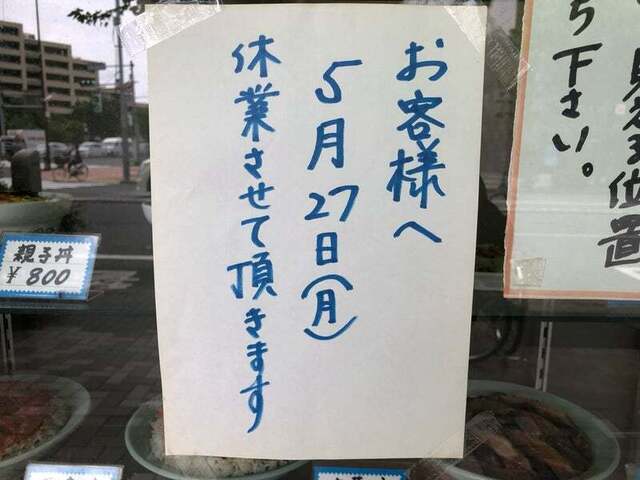 お客様へ
5月27日(月)
休業させて頂きます
ち下さい。
位置
親子丼
¥800